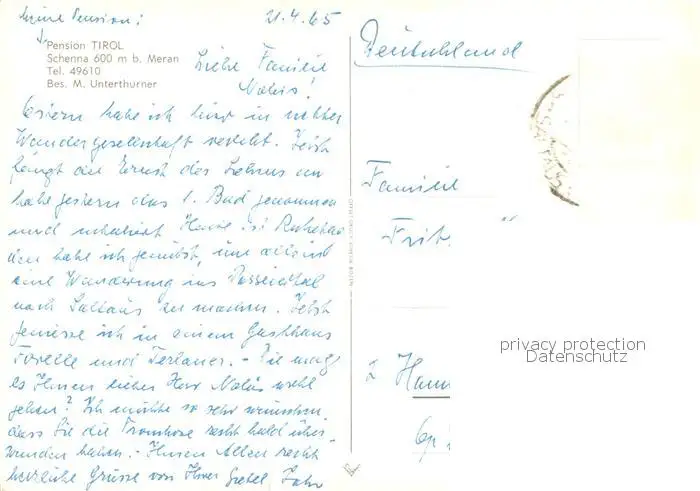 Meine Pension:
21.4.65
Pension TIROL
Schenna 600 m b. Meran
Tel. 49610
Bes. M. Unterthurner
Liebe Familie
Ostern habe ich hier in netter
Wandergesellschaft verlebt. Jetzt
fängt der Ernst des Lebens an
habe gestern das 1. Bad genommen
und inhaliert. Heute ist Ruhetag
den habe ich genützt, um allein
eine Wanderung ins Passeiertal
nach Saltaus zu machen. Jetzt
genieße ich in einem Gasthaus
Forelle und Terlaner. - Wie mag
es Ihnen lieber Herr wohl
gehen? Ich möchte so sehr wünschen,
dass Sie die Trombose recht bald über-
wunden haben. - Ihnen Allen recht
herzliche Grüsse von Ihrer Gretel
Deutschland
Familie
Fritz
Hann
privacy protection
Datenschutz